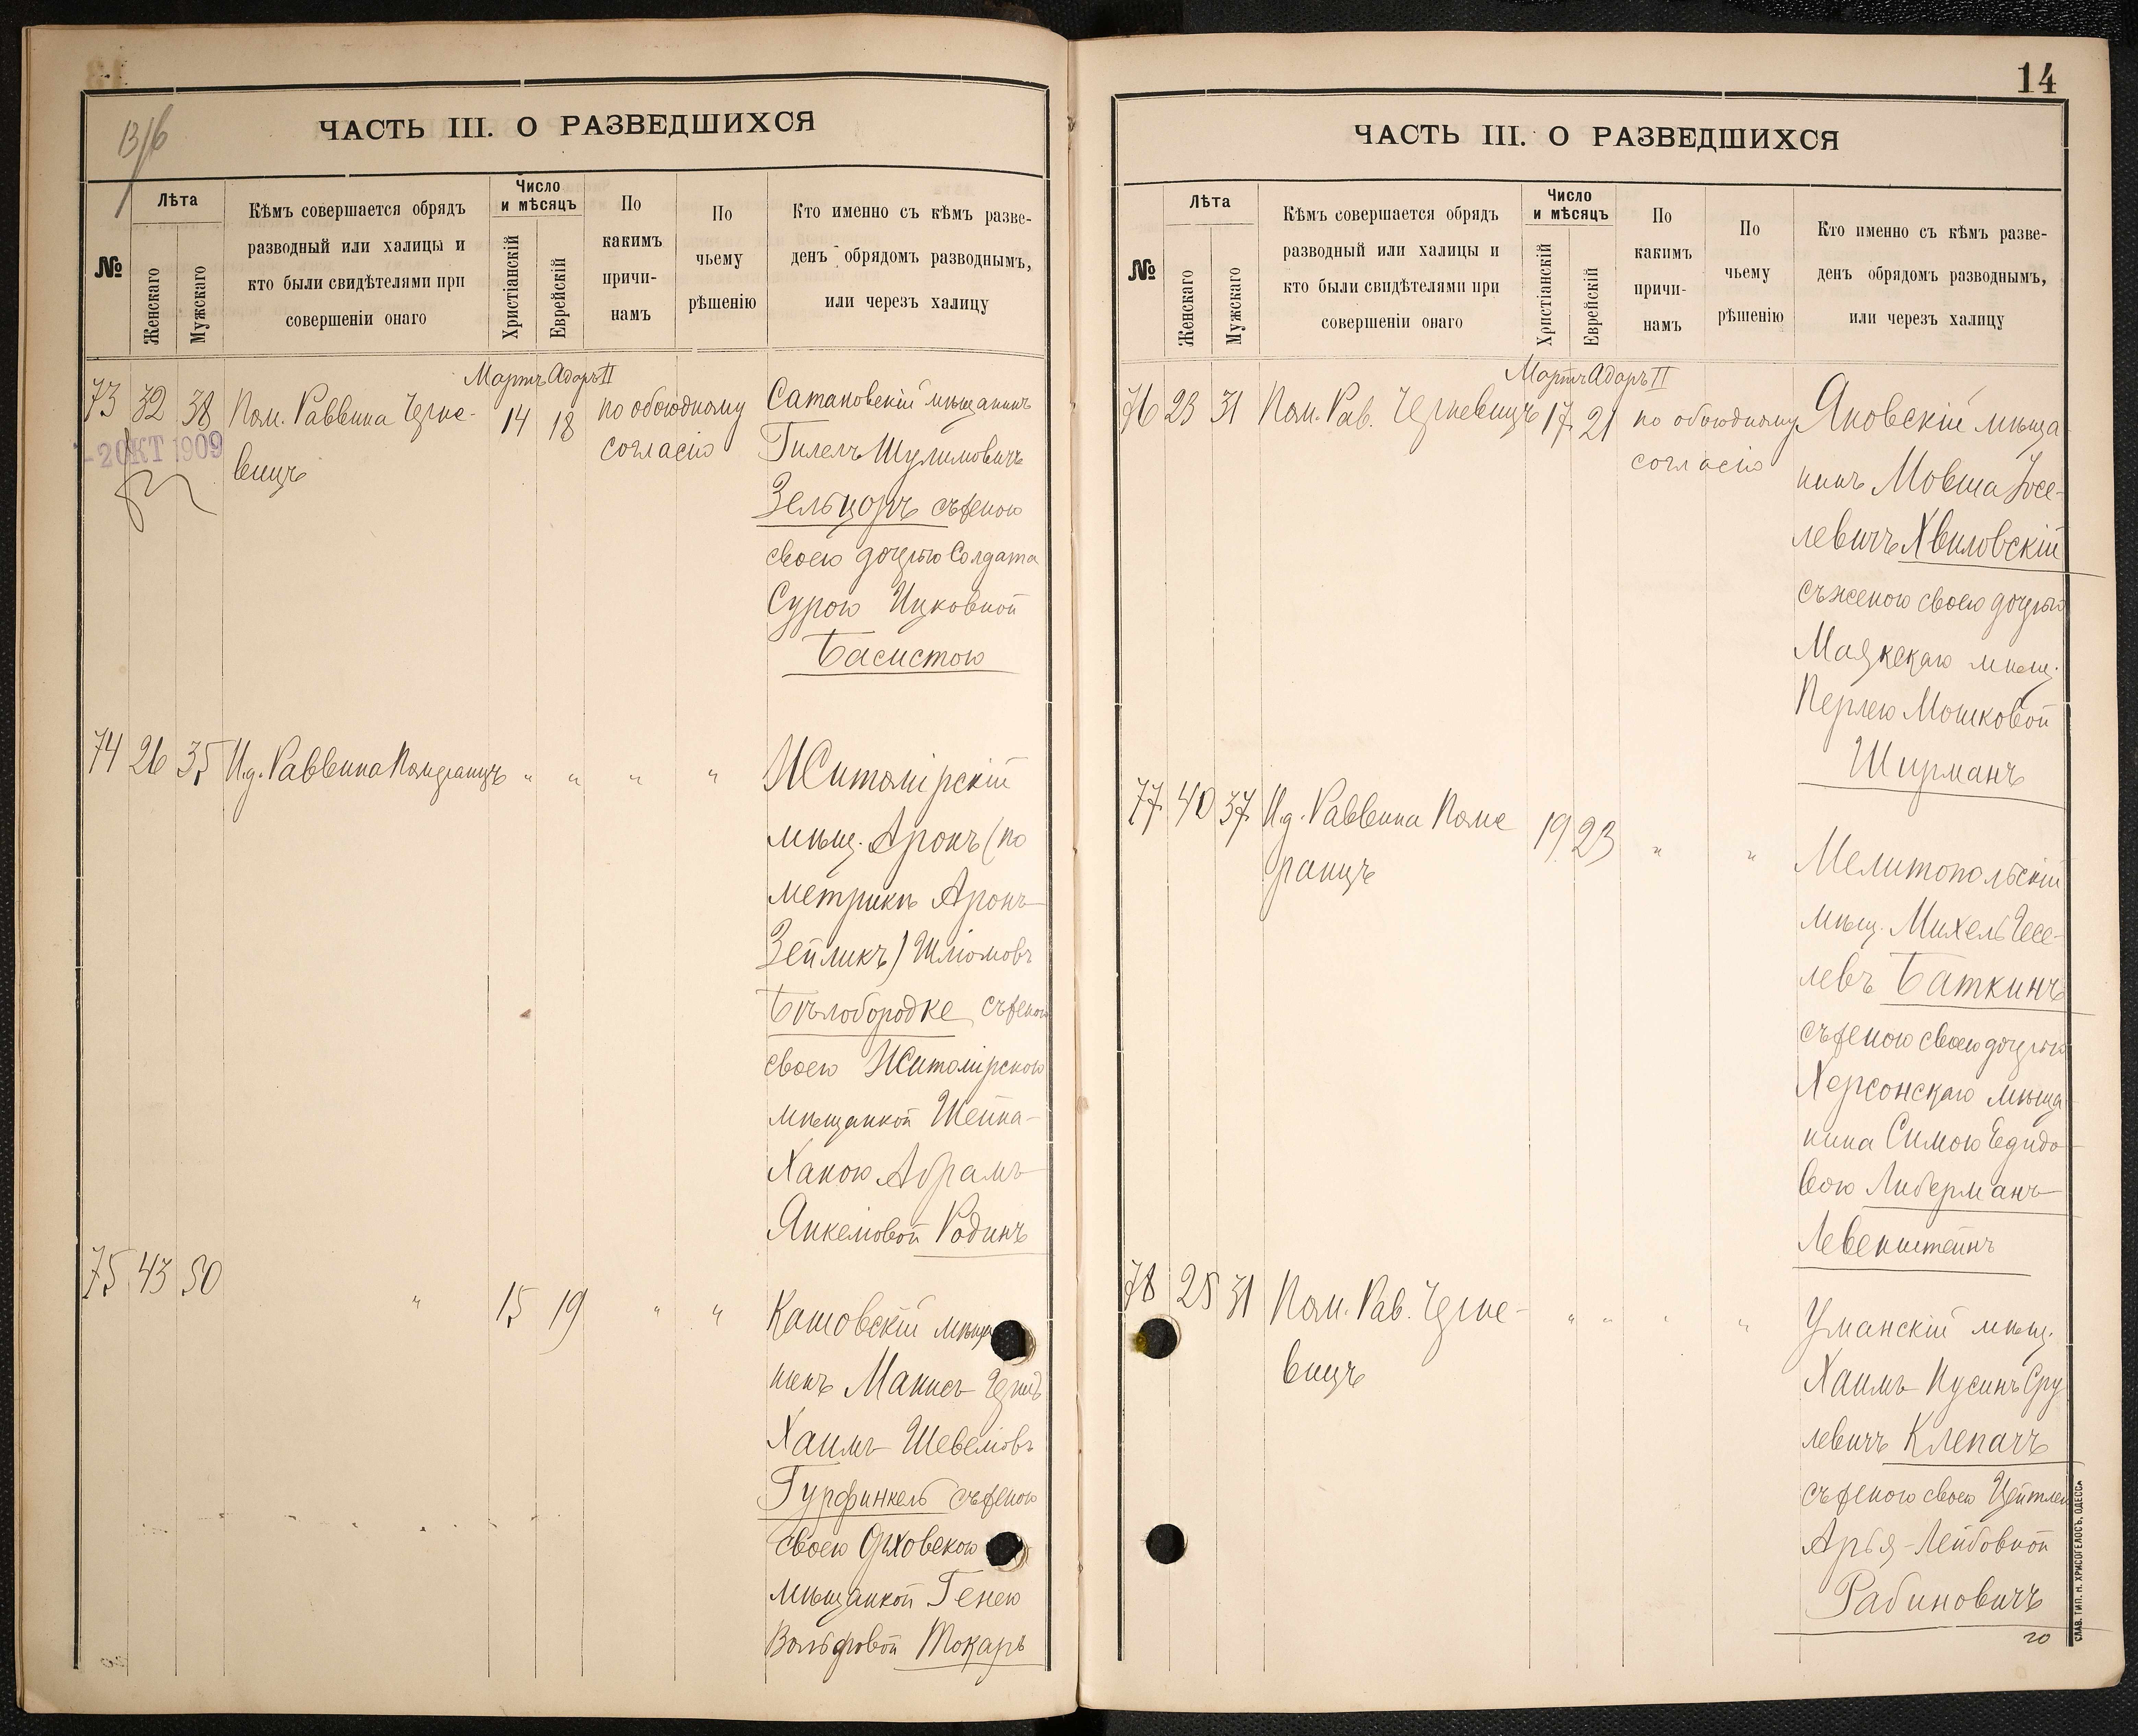 13/б
ЧАСТЬ III. О РАЗВЕДШИХСЯ
№
Лѣта
Женскаго
Мужскаго
Кѣмъ совершается обрядъ
разводный или халицы и
кто были свидѣтелями при
совершеніи онаго
Число
и мѣсяцъ
Христіанскій
Еврейскій
По
какимъ
причи-
намъ
По
чьему
рѣшенію
Кто именно съ кѣмъ разве-
денъ обрядомъ разводнымъ,
или черезъ халицу
Мартъ Адаръ II
73 32 38 Пом. Раввина Черне-
вицъ
14 18
по обоюдному
согласію
- 2 ОКТ 1909
Сатановскій мѣщанинъ
Гилелъ Шулимовичъ
Зельцеръ съ женою
своею дочерью Солдата
Сурою Ицковной
Басистою
74 26 35 И.д. Раввина Померанцъ " " " "
Житомірскій
мѣщ. Аронъ (по
метрикѣ Аронъ-
Зейликъ) Шліомовъ
Бѣлобородке съ женою
своею Житомірскою
мѣщанкой Шейна-
Ханою Абрамъ-
Янкеліовой Родинъ
75 43 50 " 15 19 " "
Кашовскій мѣща
нинъ Манисъ-
Хаимъ-Шевеліовъ
Гурфинкель съ женою
своею
мѣщанкой Генею
Вольфовой Токарь
14
ЧАСТЬ III. О РАЗВЕДШИХСЯ
№
Лѣта
Женскаго
Мужскаго
Кѣмъ совершается обрядъ
разводный или халицы и
кто были свидѣтелями при
совершеніи онаго
Число
и мѣсяцъ
Христіанскій
Еврейскій
По
какимъ
причи-
намъ
По
чьему
рѣшенію
Кто именно съ кѣмъ разве-
денъ обрядомъ разводнымъ,
или черезъ халицу
Мартъ Адаръ II
76 23 31 Пом. Рав. Черневицъ 17 21
по обоюдному
согласію
Яновскій мѣща
нинъ Мовша Іосе-
левичъ Хвиловскій
съ женою своею дочерью
Маякскаго мѣщ.
Перлею Мошковой
Ширманъ
77 40 37 И.д. Раввина Поме
ранцъ
19 23 " "
Мелитопольскій
мѣщ. Михель
левъ Баткинъ
съ женою своею дочерью
Херсонскаго мѣща
нина Симою Едидо
вою Либерманъ-
Левенштейнъ
78 25 31 Пом. Рав. Черне-
вицъ
" " " "
Уманскій мѣщ.
Хаимъ-Нусинъ Сру
левичъ Клепачъ
съ женою своею Цейтлею
Арья-Лейбовной
Рабиновичъ
20
СЛАВ. ТИП. Н. ХРИСОГЕЛОСЪ, ОДЕССА